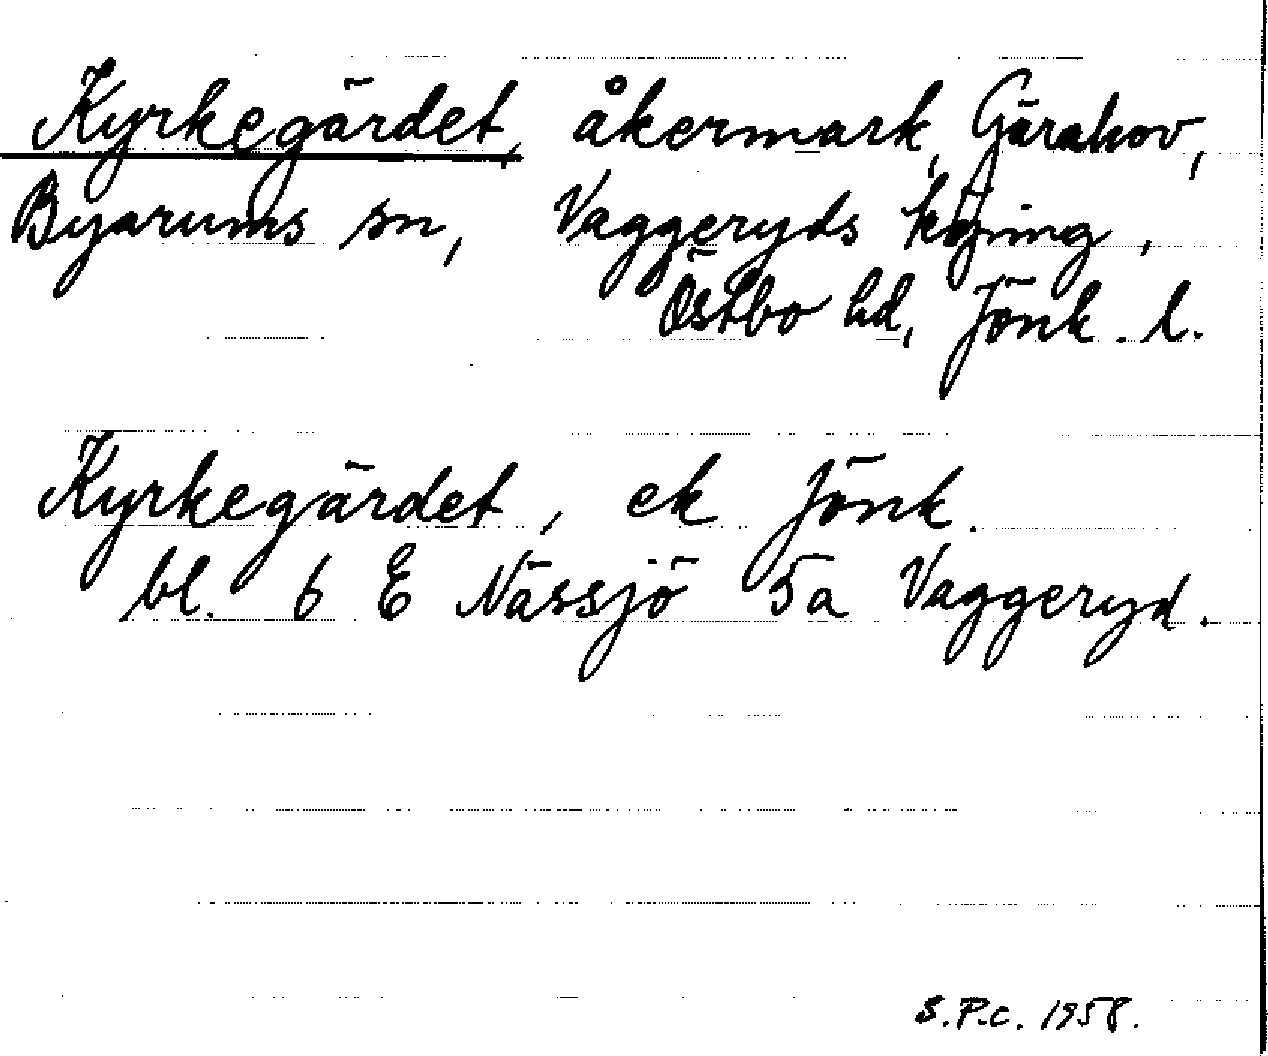 Kyrkegärdet, åkermark, Gärahov,
Byarums sn, Vaggeryds köping,
Östbo hd, Jönk. l.
Kyrkegärdet, ek Jönk.
bl. 6 E Nässjö 5a Vaggeryd.
S.P.c. 1958.